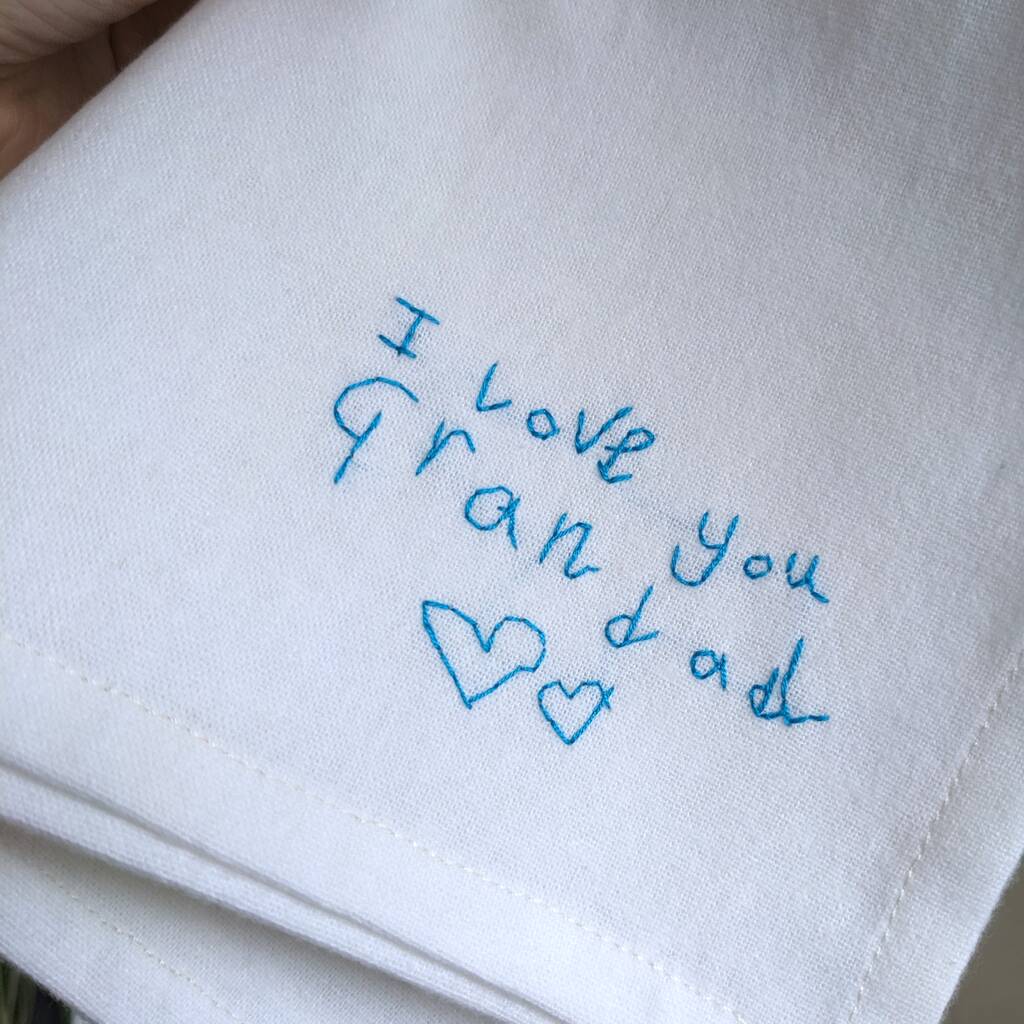 I love you
Grandad